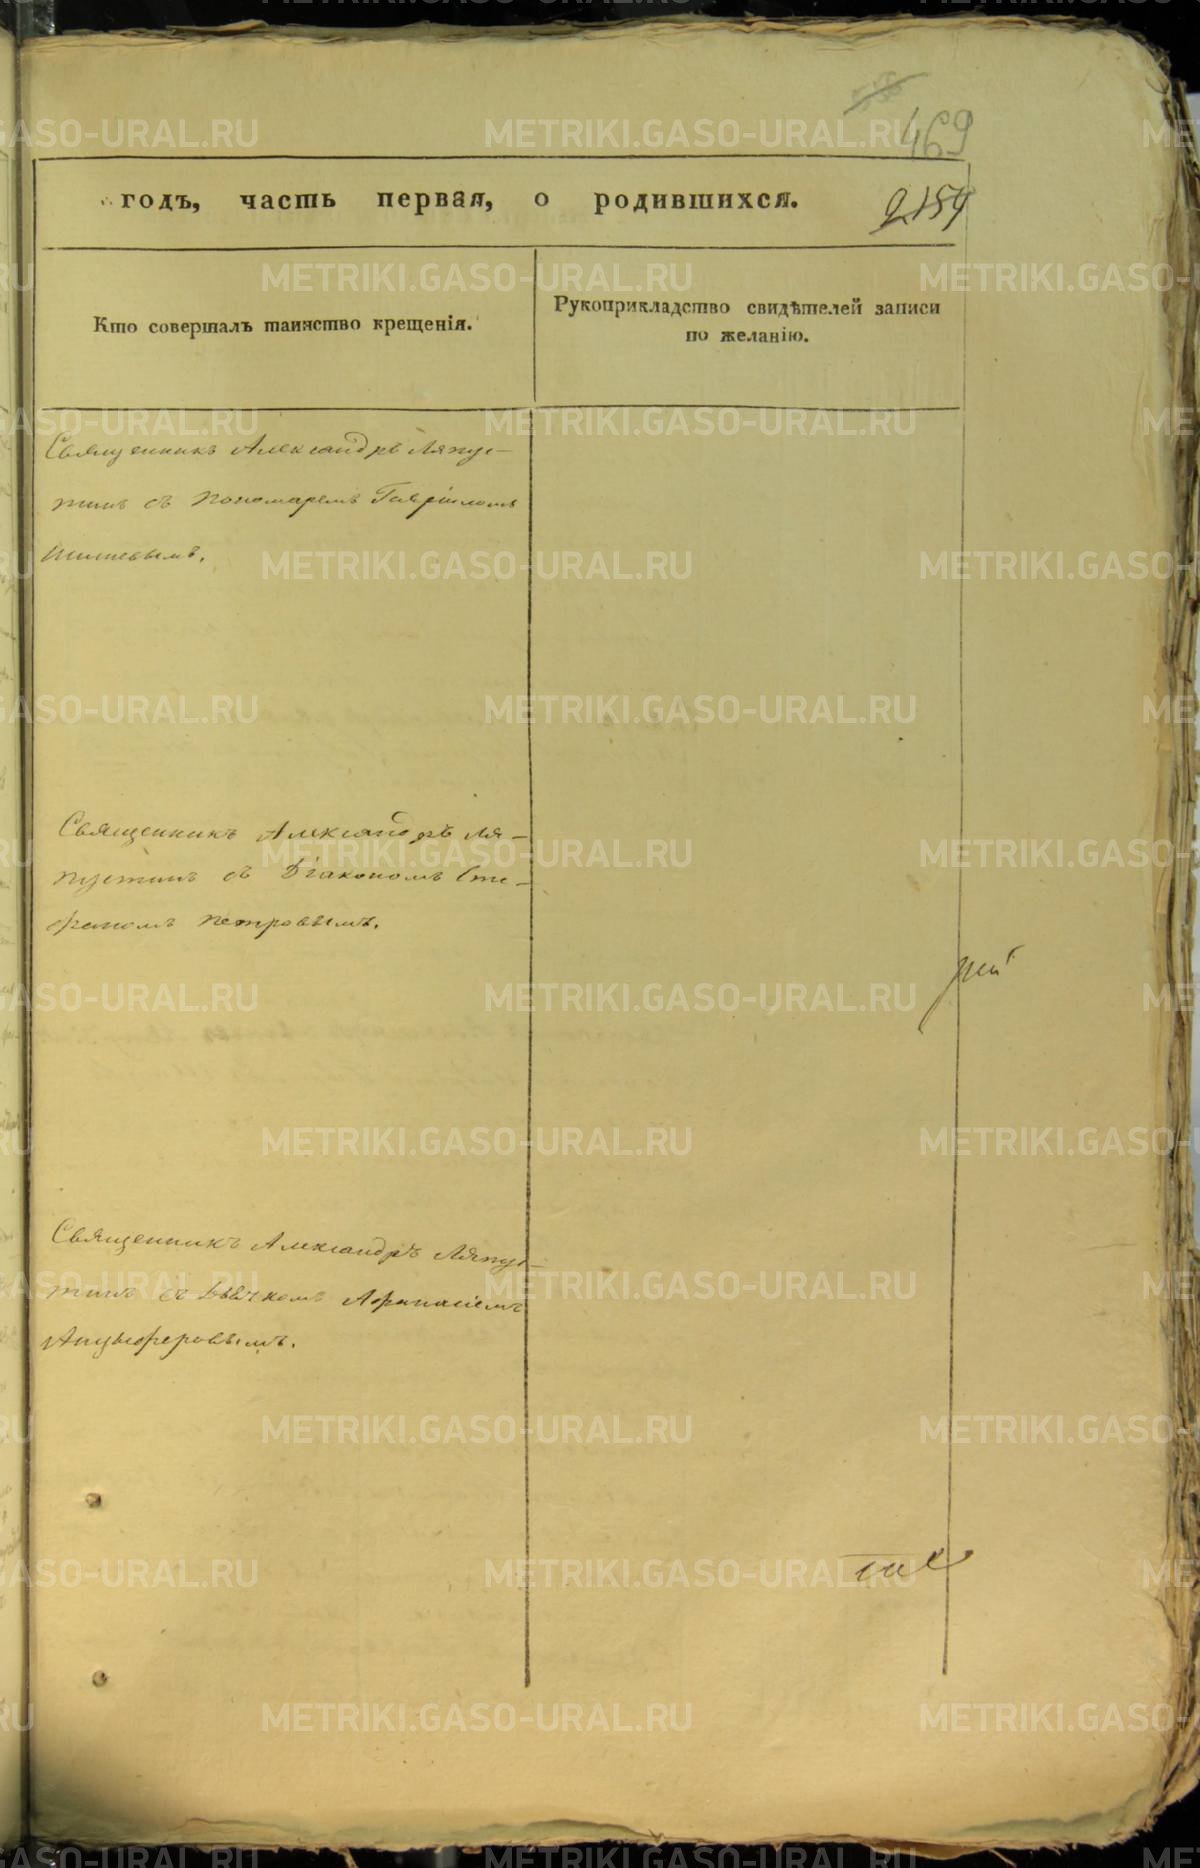 469
2154
годъ, часть первая, о родившихся.
Кто совершалъ таинство крещенія.
Рукоприкладство свидѣтелей записи
по желанію.
Священникъ Александръ Ляпус-
тинъ съ Пономаремъ Гавріиломъ
Священникъ Александръ Ля-
пустинъ съ Діакономъ Сте-
фаномъ Петровымъ.
Священникъ Александръ Ляпус-
тинъ съ Дьячкомъ Афанасіемъ
Анцыферовымъ.
METRIKI.GASO-URAL.RU